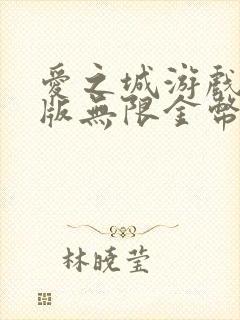 愛之城游戲
版無限金幣
林曉莹